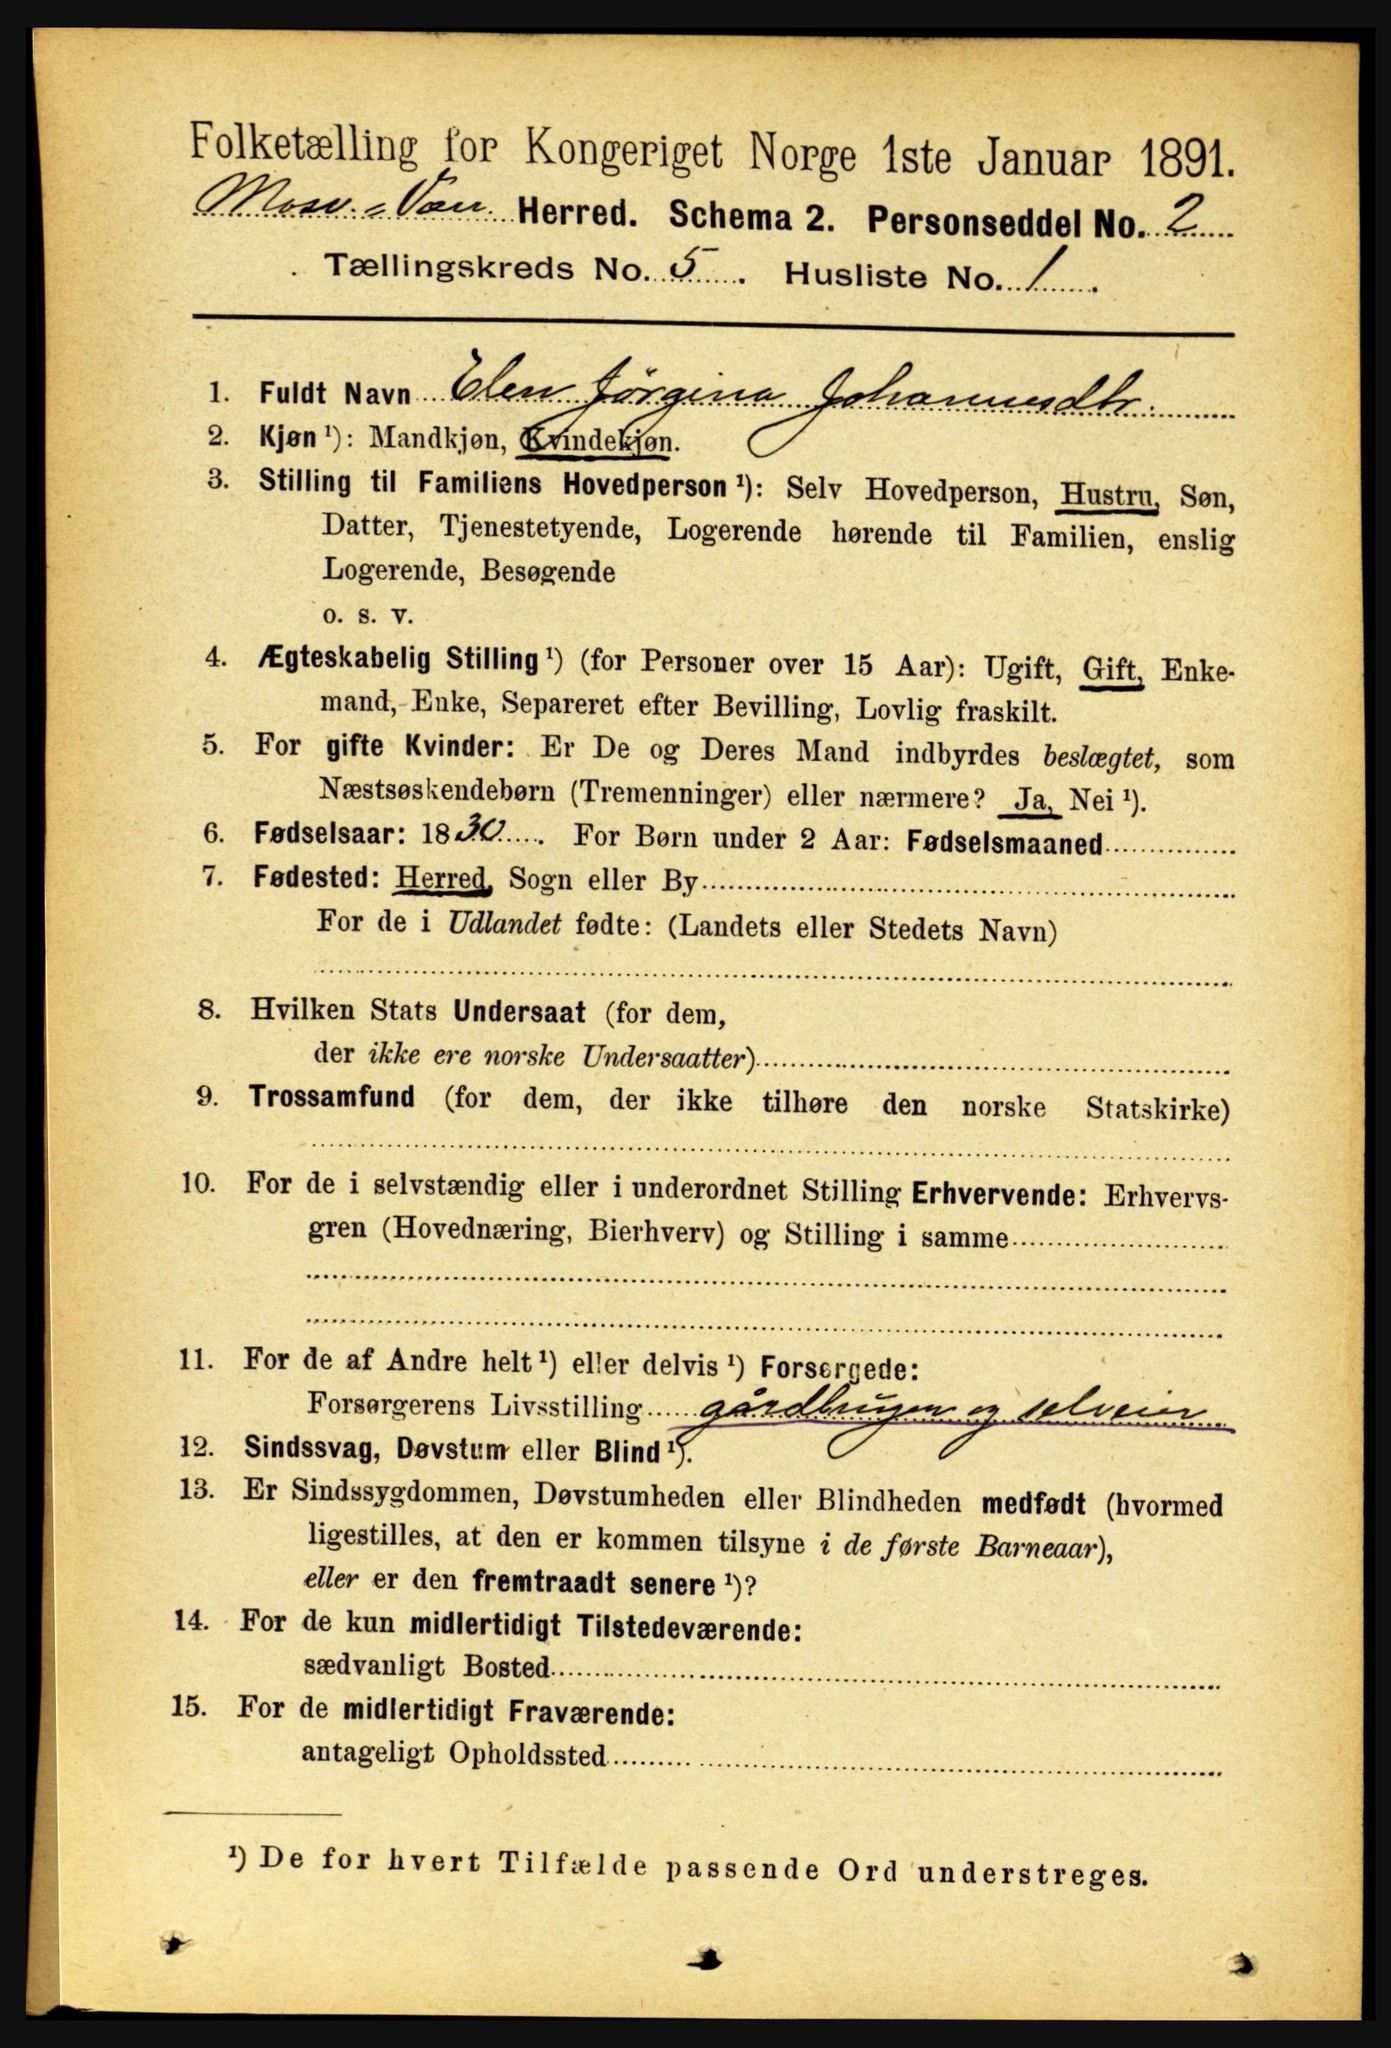 Folketælling for Kongeriget Norge 1ste Januar 1891.
Herred. Schema 2. Personseddel No. 2
Tællingskreds No. 5. Husliste No. 1.
1. Fuldt Navn Elen Jørgina Johannesdtr.
2. Kjøn ¹): Mandkjøn, Kvindekjøn.
3. Stilling til Familiens Hovedperson ¹): Selv Hovedperson, Hustru, Søn,
Datter, Tjenestetyende, Logerende hørende til Familien, enslig
Logerende, Besøgende
o. s. v.
4. Ægteskabelig Stilling ¹) (for Personer over 15 Aar): Ugift, Gift, Enke-
mand, Enke, Separeret efter Bevilling, Lovlig fraskilt.
5. For gifte Kvinder: Er De og Deres Mand indbyrdes beslægtet, som
Næstsøskendebørn (Tremenninger) eller nærmere? Ja, Nei ¹).
6. Fødselsaar: 1830. For Børn under 2 Aar: Fødselsmaaned
7. Fødested: Herred, Sogn eller By
For de i Udlandet fødte: (Landets eller Stedets Navn)
8. Hvilken Stats Undersaat (for dem,
der ikke ere norske Undersaatter)
9. Trossamfund (for dem, der ikke tilhøre den norske Statskirke)
10. For de i selvstændig eller i underordnet Stilling Erhvervende: Erhvervs-
gren (Hovednæring, Bierhverv) og Stilling i samme
11. For de af Andre helt ¹) eller delvis ¹) Forsørgede:
Forsørgerens Livsstilling gårdbruger og selveier
12. Sindssvag, Døvstum eller Blind ¹).
13. Er Sindssygdommen, Døvstumheden eller Blindheden medfødt (hvormed
ligestilles, at den er kommen tilsyne i de første Barneaar),
eller er den fremtraadt senere ¹)?
14. For de kun midlertidigt Tilstedeværende:
sædvanligt Bosted
15. For de midlertidigt Fraværende:
antageligt Opholdssted
¹) De for hvert Tilfælde passende Ord understreges.